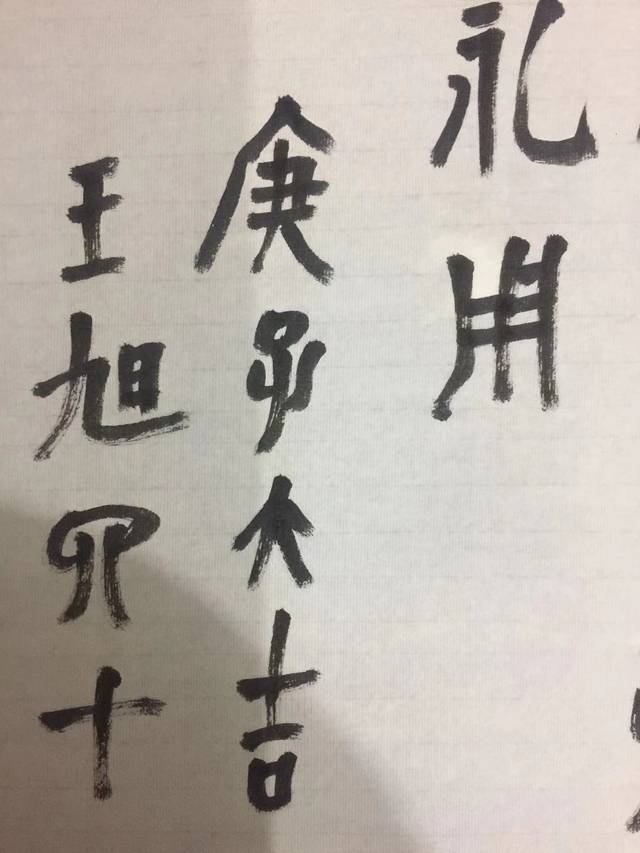 礼用
庚子大吉
王旭四十